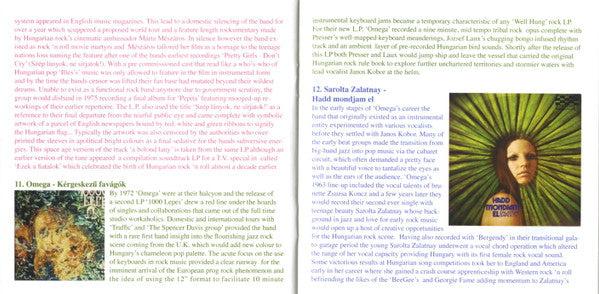 system appeared in English music magazines. This lead to domestic silencing of the band for
over a year which scuppered a proposed world tour and a feature length rockumentary made
by Hungarian rock's cinematic ambassador Márta Mészáros. In silence however the band ex-
isted as rock 'n roll movie martyrs and Mészáros tailored her film as a homage to the teenage
nations loss naming the feature after one of the bands earliest recordings 'Pretty Girls - Don't
Cry' (Szép lányok, ne sírjatok!). With a pre commissioned cast that read like a who's-who of
Hungarian pop 'Illes's' music was only allowed to feature in the film in instrumental form
and by the time the bands censor was lifted their fan base had mutated beyond their wildest
dreams. Unable to exist as a functional rock band anymore due to government scrutiny, the
group would disband in 1975 recording a final album for 'Pepita' featuring mooged-up re-
workings of their earlier repertoire. The L.P. also used the title "Szép lányok, ne sírjatok!" as a
reference to their final departure from the tearful public eye and came complete with symbolic
artwork of a parcel of English notepapers bound by red, white and green ribbons to signify
the Hungarian flag... Typically the artwork was also censored by the authorities who over
printed the sleeves in apolitical bright colours as a final sedative for the bands subversive ener-
gies. This space age version of the track 'a bolond lany' is taken from the same LP although an
earlier version of the tune appeared a compilation soundtrack LP for a T.V. special in called
'Ezek a fiatalok' which celebrated the birth of Hungarian rock 'n roll almost a decade earlier.
11. Omega - Kérgeskezű favágók
By 1972 'Omega' were at their halcyon and the release of
a second LP '1000 Lepes' drew a red line under the boards
of singles and collaborations that came out of the full time
studio workaholics. Domestic and international tours with
'Traffic' and 'The Spencer Davis group' provided the band
with a rare first hand insight into the flourishing jazz rock
scene coming from the U.K. which would add new colour to
Hungary's chameleon pop palette. The acute focus on the use
of keyboards in rock music provided a clear runway for the
imminent arrival of the European prog rock phenomenon and
the idea of using the 12" format to facilitate 10 minute
instrumental keyboard jams became a temporary characteristic of any 'Well Hung' rock LP.
For their new L.P. 'Omega' recorded a nine minute, mid tempo tribal rock opus complete with
Presser's well-mapped keyboard meanderings, Josef Laux's chugging bongo infused rhythm
track and an ambient layer of pre-recorded Hungarian bird sounds. Shortly after the release of
this LP both Presser and Laux would jump ship and leave the vessel that carried the original
Hungarian rock rule book to explore further unchartered territories and stormier waters with
lead vocalist Janos Kobor at the helm.
12. Sarolta Zalatnay -
Hadd mondjam el
In the early stages of 'Omega's career the
band that originally existed as an instrumental
entity experimented with various vocalists
before they settled with Janos Kobor. Many of
the early beat groups made the transition from
big-band jazz into pop music via the cabaret
circuit, which often demanded a pretty face
with a beautiful voice to tantalize the eyes as
well as the ears of the audience. 'Omega's
1963 line-up included the vocal talents of bru-
nette Zsuzsa Koncz and a few years later they
would record their second ever single with
teenage beauty Sarolta Zalatnay whose back-
ground in jazz and love for early rock music
would open up a host of creative opportunities
for the Hungarian rock scene. Having also recorded with 'Bergendy' in their transitional gala-
to garage period the young Sarolta Zalatnay underwent a vocal chord operation which altered
the range of her vocal capacity providing Hungary with its first female rock vocal sound.
Some victorious results at Hungarian song competitions took her to England and America
early in her career where she gained a crash course apprenticeship with Western rock 'n roll
befriending the likes of the 'BeeGee's and Georgie Fame adding momentum to Zalatnay's
HADD
MONDJAM
EL